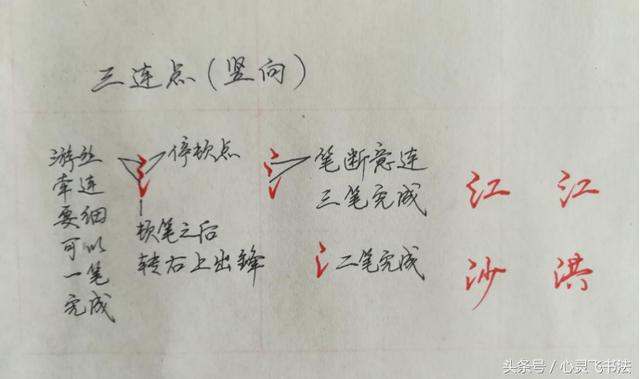 三连点(竖向)
游丝
牵连
要细
可以
一笔
完成
停顿点
顿笔之后
转右上出锋
笔断意连
三笔完成
二笔完成
江 江
沙 洪
头条号/心灵飞书法